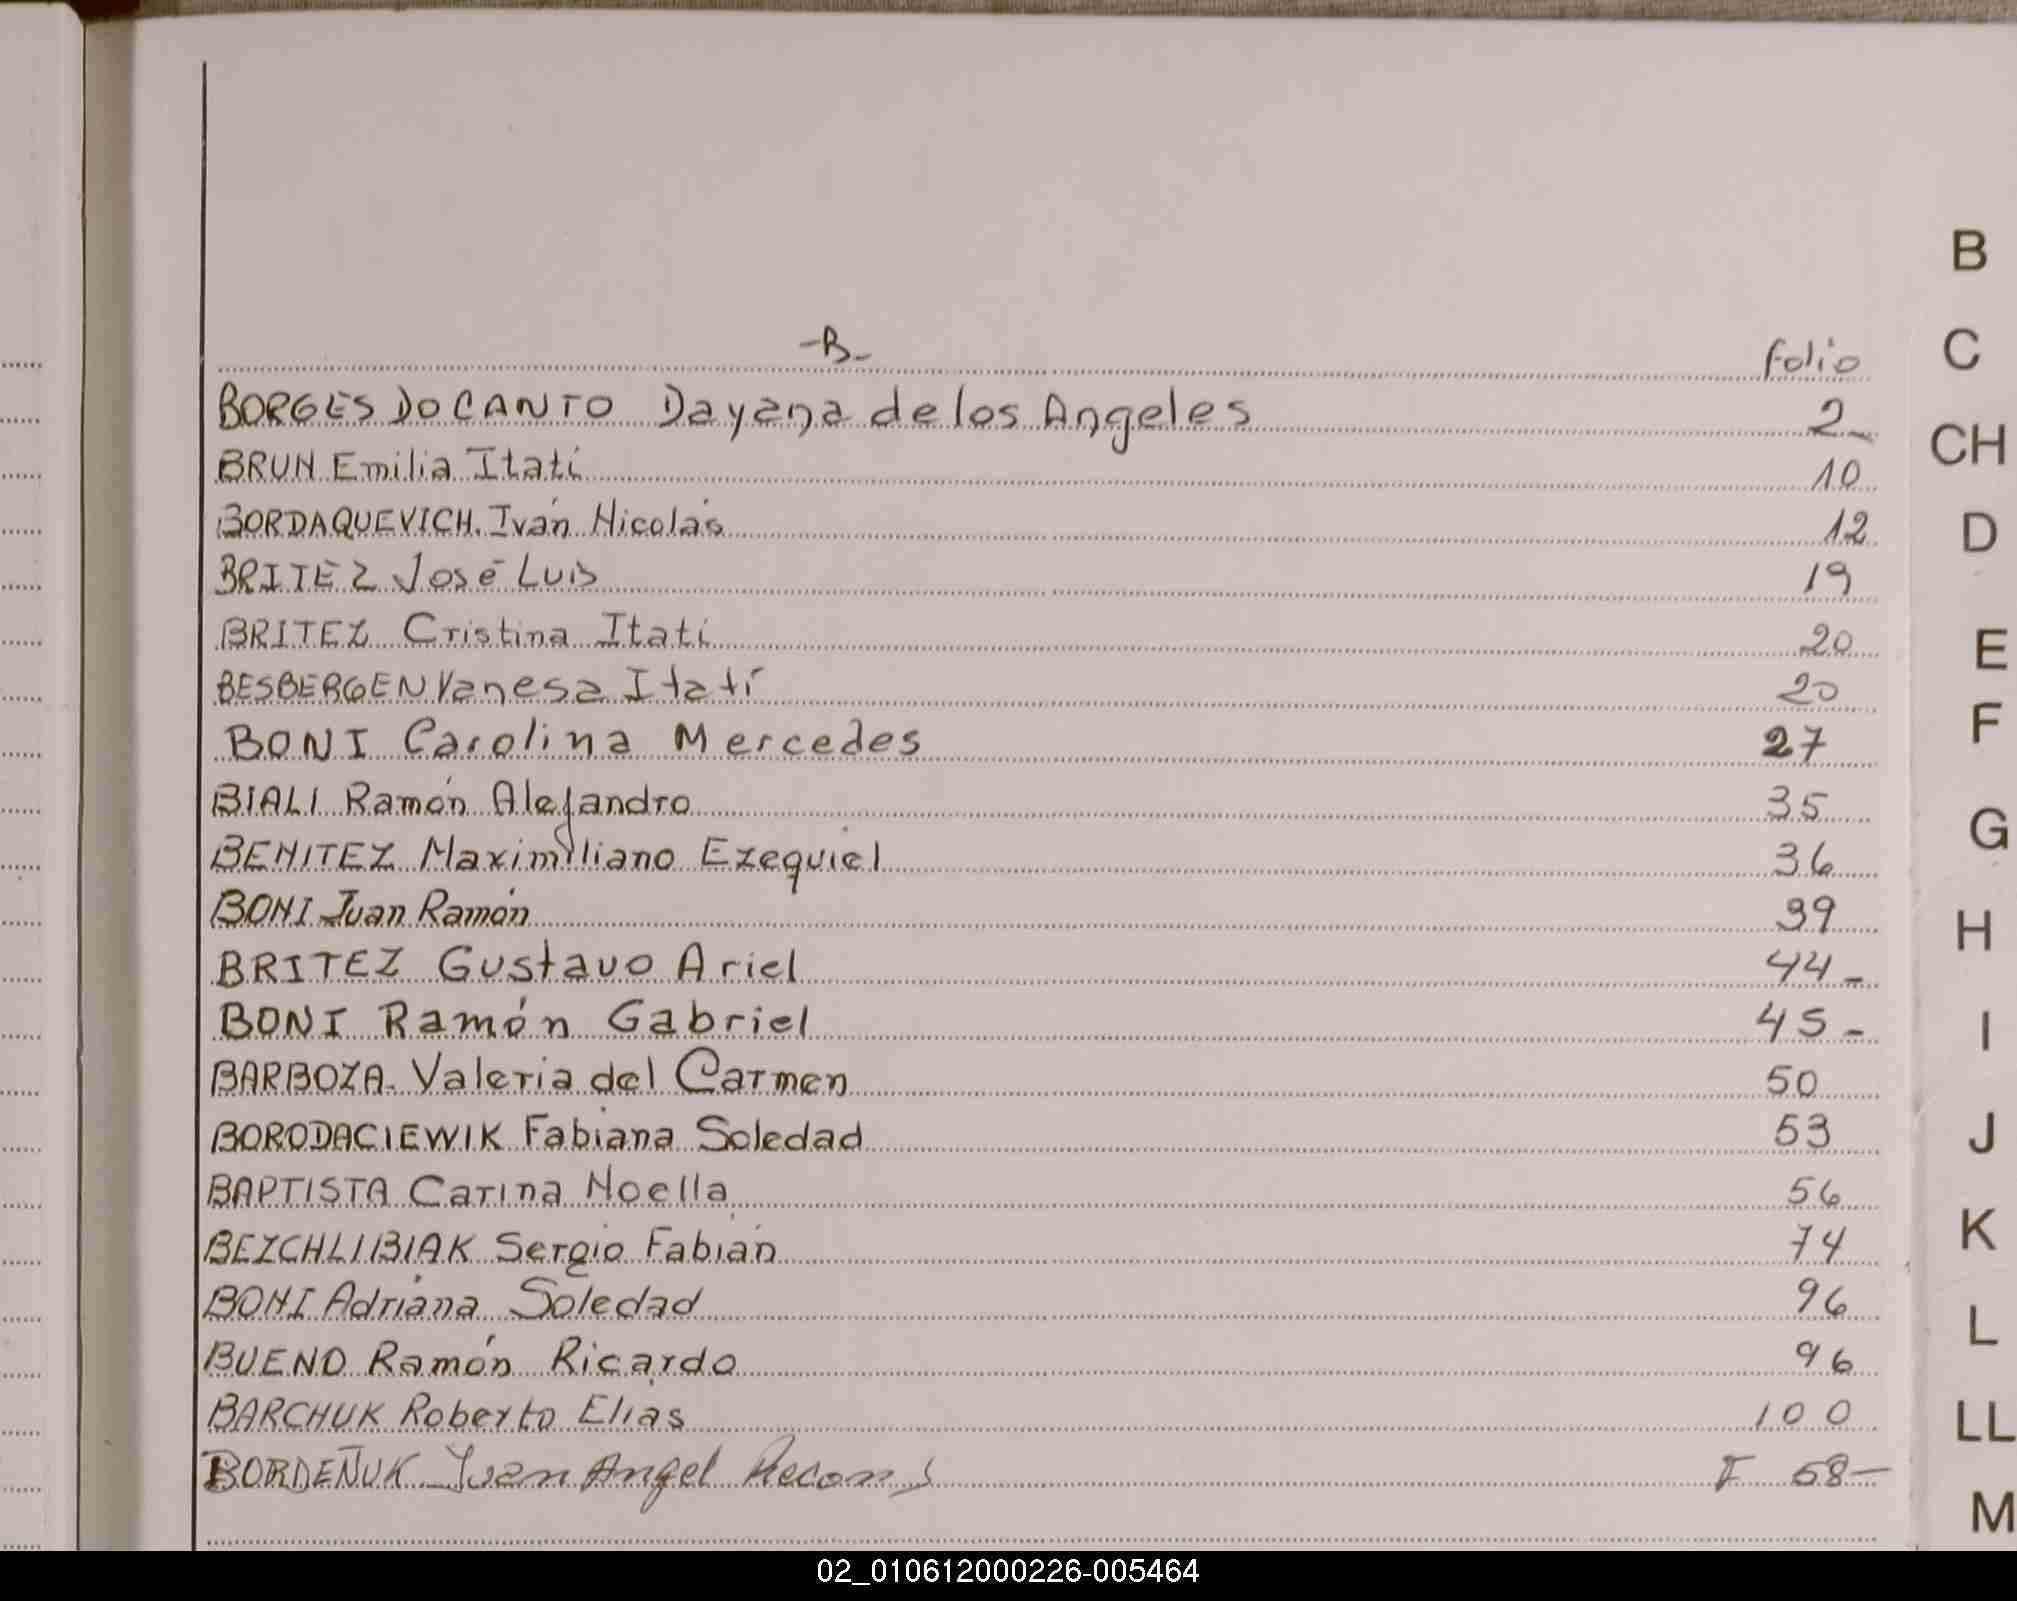 -B-
folio
BORGES DO CANTO Dayana de los Angeles 2-
BRUN Emilia Itatí 10
BORDAQUEVICH. Iván Nicolás 12
BRITEZ José Luis 19
BRITEZ Cristina Itatí 20
BESBERGEN Vanesa Itatí 20
BONI Carolina Mercedes 27
BIALI Ramón Alejandro 35
BENITEZ Maximiliano Ezequiel 36
BONI Juan Ramón 39
BRITEZ Gustavo Ariel 44-
BONI Ramón Gabriel 45-
BARBOZA. Valeria del Carmen 50
BORODACIEWIK Fabiana Soledad 53
BAPTISTA Carina Noella 56
BEZCHLIBIAK Sergio Fabián 74
BONI Adriana Soledad 96
BUENO Ramón Ricardo 96
BARCHUK Roberto Elias 100
BORDEÑUK Juan Angel Recon F 58-
B
C
CH
D
E
F
G
H
I
J
K
L
LL
M
02_010612000226-005464